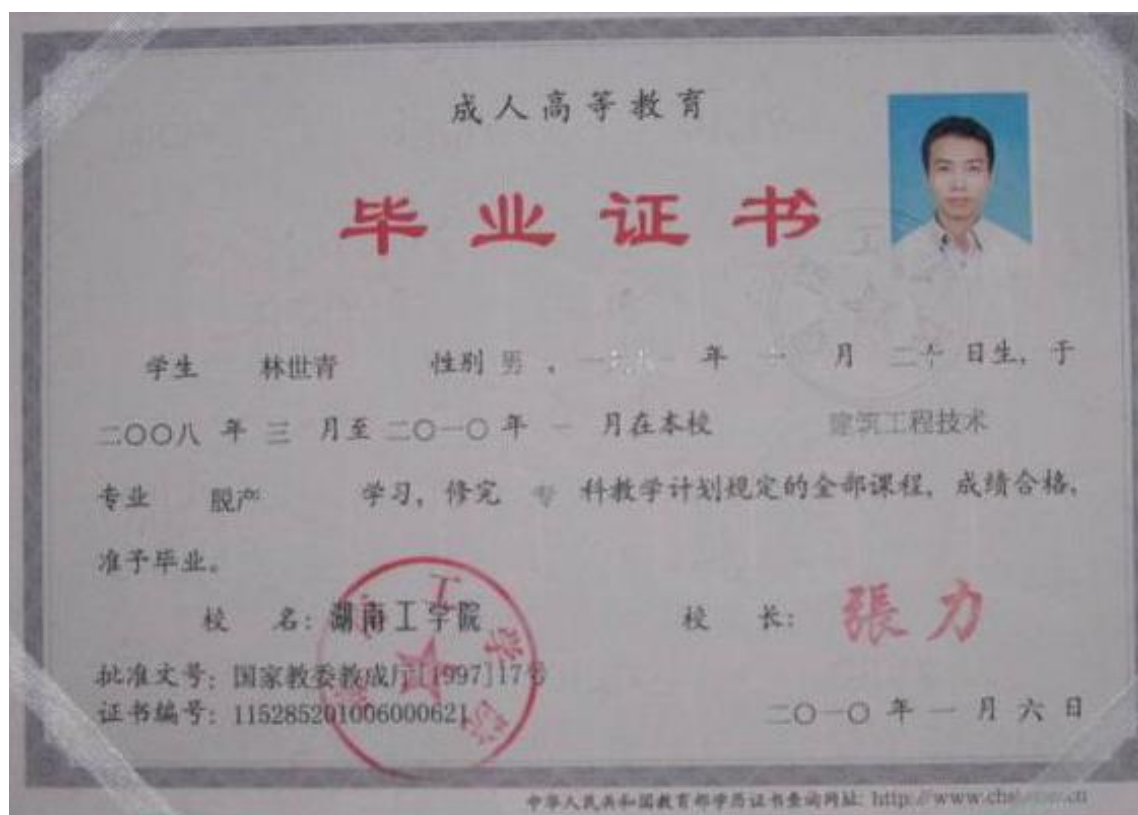 成人高等教育
毕业证书
学生 林世青 性别 男，一 年 一 月 二 日生，于
二〇〇八 年 三 月至 二〇一〇 年 一 月在本校 建筑工程技术
专业 脱产 学习，修完 专 科教学计划规定的全部课程，成绩合格，
准予毕业。
校 名：湖南工学院 校 长：張力
批准文号：国家教委教成厅[1997]17号
证书编号：115285201006000621
二〇一〇 年 一 月 六 日
中华人民共和国教育部学历证书查询网址：http://www.ch